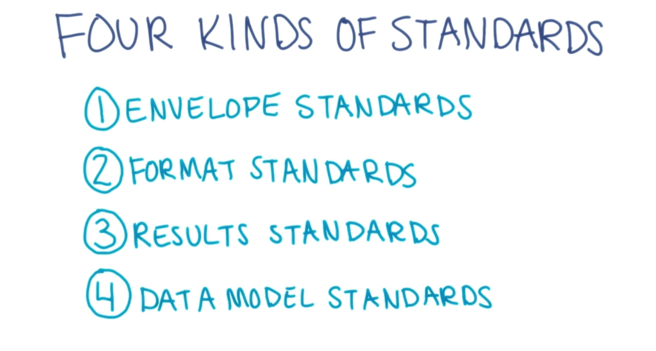 FOUR KINDS OF STANDARDS
1 ENVELOPE STANDARDS
2 FORMAT STANDARDS
3 RESULTS STANDARDS
4 DATA MODEL STANDARDS